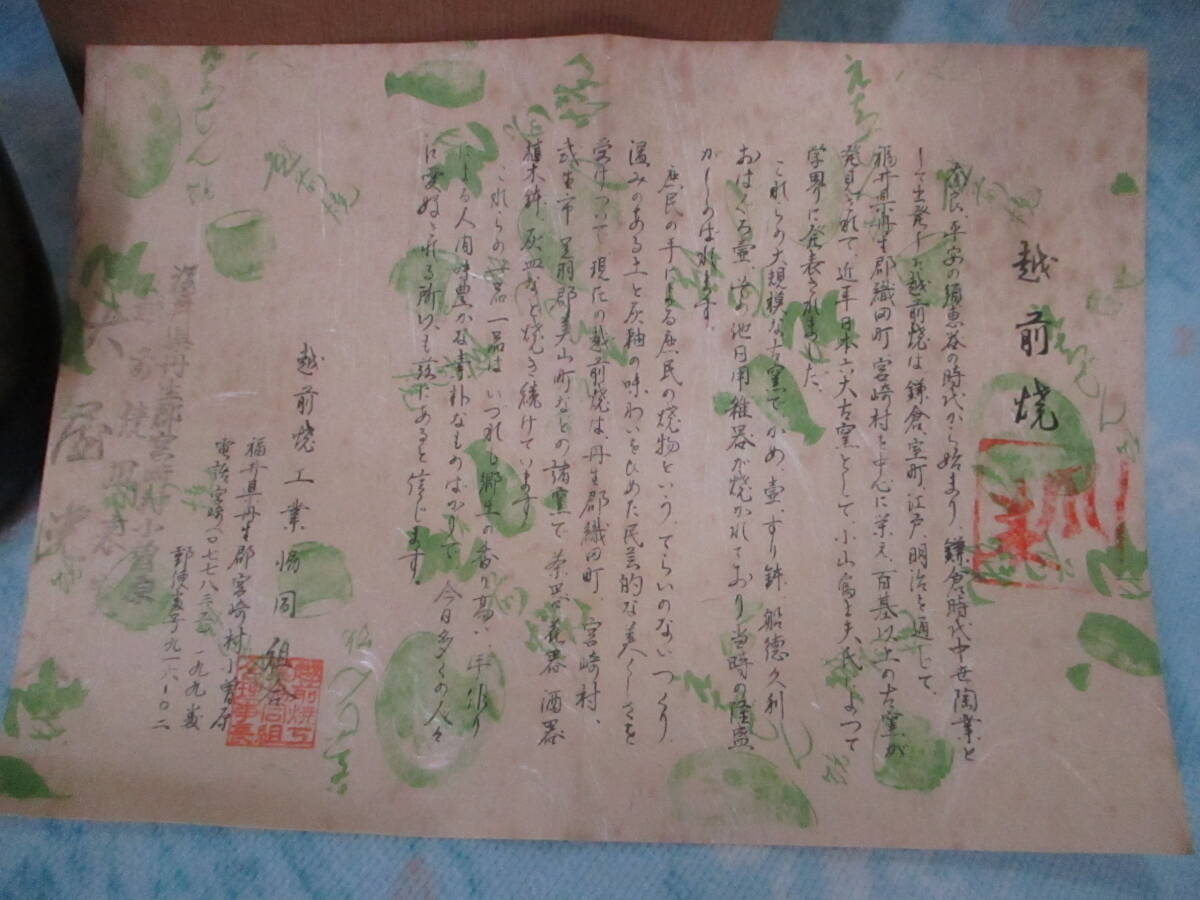 越前焼
奈良、平安の須恵器の時代から始まり、鎌倉時代中世陶業と
して土発した越前焼は鎌倉、室町、江戸、明治を通して、
福井県丹生郡織田町宮崎村を中心に栄え、百基以上の古窯が
発見されて、近年日本六大古窯として、小山富士夫氏によつて
学界に発表されました。
これらの大規模な古窯で、かめ、壷、すり鉢、船徳久利
おはぐろ壷、その他日用雑器が焼かれており当時の隆盛
がしのばれます。
庶民の手による庶民の焼物という、てらいのないつくり、
温みのある土と灰釉の味わいをひめた民芸的な美くしさを
受けついで、現在の越前焼は、丹生郡織田町、宮崎村、
武生市、足羽郡美山町などの諸窯で、茶器、花器、酒器
植木鉢、灰皿などを焼き続けています。
これらの一品一品は、いづれも郷土の香り高い、手作り
による人間味豊かな素朴なものばかりで、今日多くの人々
に愛好される所以も茲にあると信じます。
越前焼工業協同組合
福井県丹生郡宮崎村小曽原
電話宮崎(〇七七八三二)一九九番
郵便番号九一六-〇二
福井県丹生郡宮崎村小曽原
越前焼工業協同組合理事長